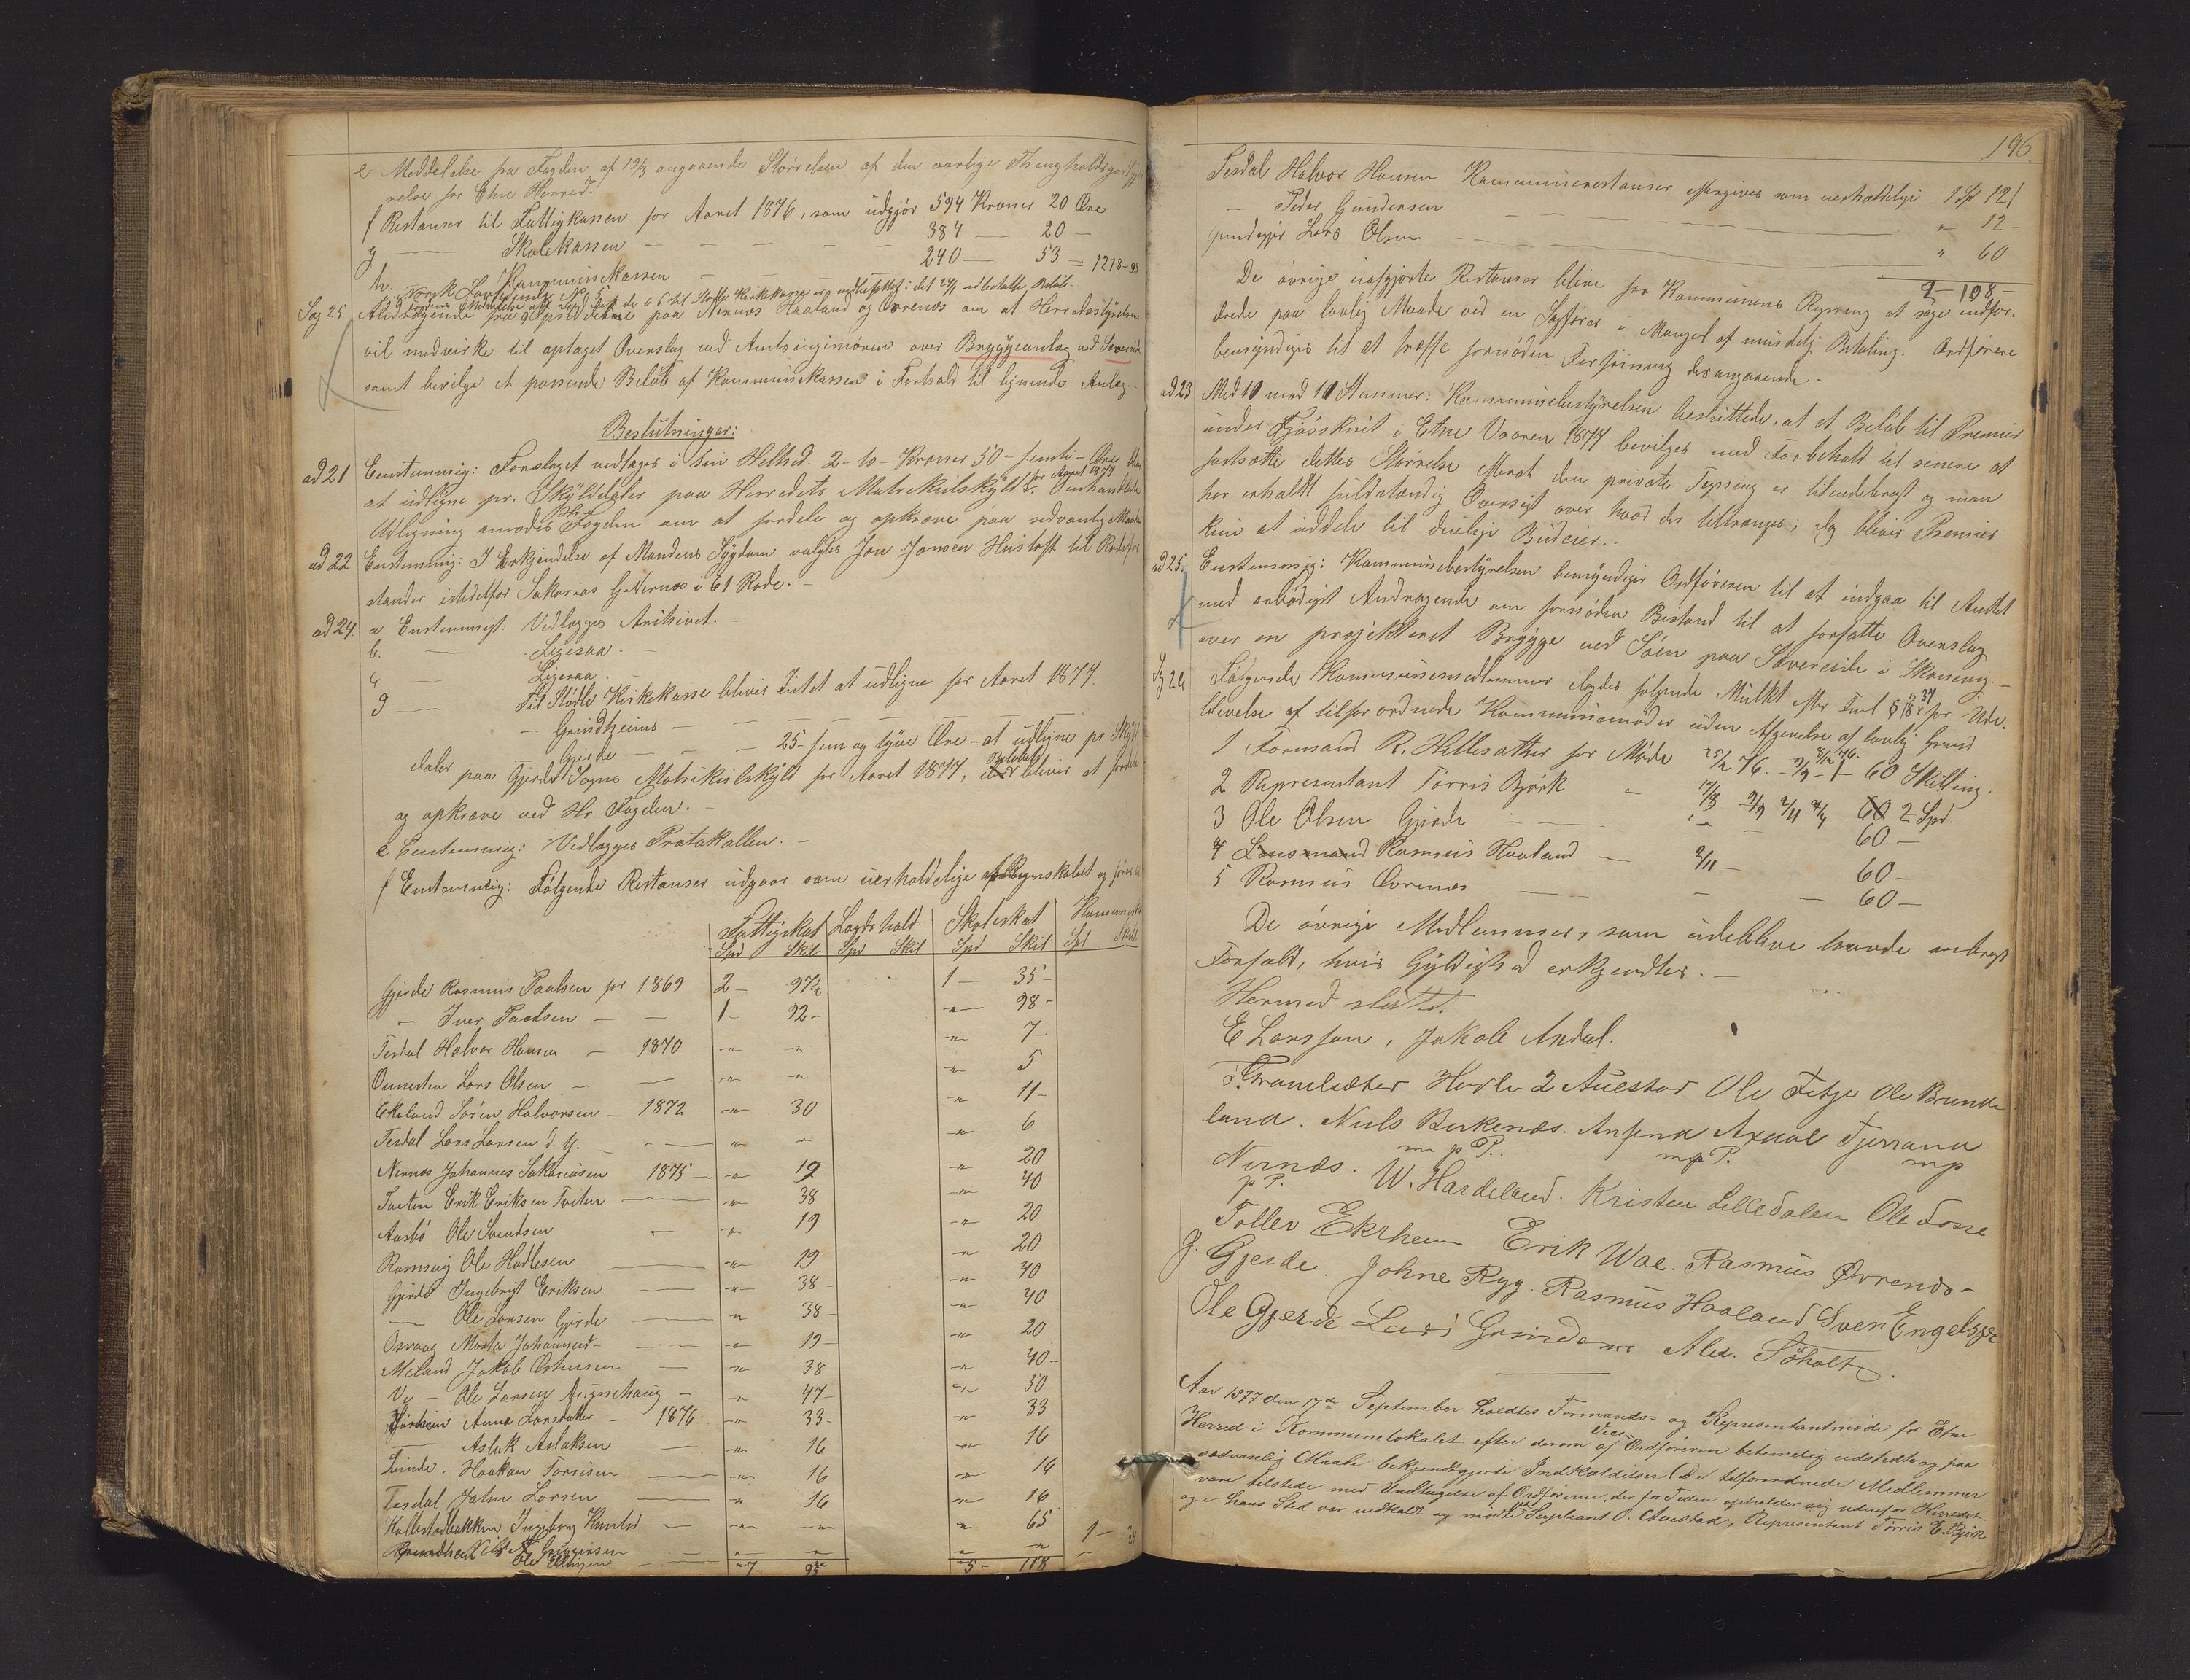 e Meddelelse fra Fogden af 19/3 angaaende Størrelsen af den aarlige Thingholdsgodtgjø
relse for Etne Herred.
f Restanser til Fattigkassen for Aaret 1876, som udgjør 594 Kroner 20 Øre
g — Skolekassen — — — — 384 — 20 —
h. Kommunekassen — — — 240 — 53 = 1218-93
Norsk Lovtidende No 5
Sag 25 Andragende fra Opsidderne paa Nernæs Haaland og Øvrenæs om at Herredsstyrelsen
vil medvirke til optaget Overslag ved Amtsingeniøren over Bryggeanlæg ved Sævereide
samt bevilge et passende Beløb af Kommunekassen i Forhold til lignende Anlæg.
Beslutninger:
ad 21 Eenstemmig: Forslaget vedtages i sin Helhed. 2-to-Kroner 50-femti-Øre
at udligne pr. Skylddaler paa Herredets Matrikulskyld for Aaret 1877.
Udligning anmodes Hr Fogden om at fordele og opkræve paa sedvanlig Maade
ad 22 Eenstemmig: I Erkjendelse af Mandens Sygdom valgtes Jon Jonsen Hustoft til Rodefor
stander istedetfor Sakarias G. Nernæs i 61 Rode. —
ad 24. a Eenstemmigt: Vedlægges Arkivet. —
b. — Ligesaa. —
c — Ligesaa.
g — Til Stødle Kirkekasse bliver Intet at udligne for Aaret 1877.
— Grindheims — — — — — —
— Gjerde — — — 25-fem og tyve Øre-at udligne pr Skyld
daler paa Gjerde Sogns Matrikulskyld for Aaret 1877, Beløbet bliver at fordele
og opkræve ved Hr Fogden. —
e Eenstemmig: Vedlægges Protokollen. —
f Eenstemmig: Følgende Restanser udgaar som uerholdelige af Regnskabet og
Fattigskat Lægdshold Skoleskat
Spd Skil Spd Skil Spd Skil Spd Skil
Gjerde Rasmus Paulsen for 1869 2 — 97½ 1 — 35 —
— Iver Paulsen — — 1 — 92 — " 98 —
Tesdal Halvor Hansen — 1870 " " " 7 —
Lars Olsen — — " " " 5
Ekeland Søren Halvorsen — 1872 " 30 " 11 —
Tesdal Lars Larsen d. y. — " — " 6
Nernæs Johannes Sakariasen 1875 — " 19 " 20
Tveten Erik Eriksen Tveten — " 38 " 40
Aarbø Ole Svendsen — " 19 " 20
Ramsvig Ole Hadlesen — " 19 " 20
Gjerde Ingebrigt Eriksen — " 38 — " 40
— Ole Larsen Gjerde — " 38 — " 40
Osvaag Marta Johannesd — " 19 — " 20
Meland Jakob Østensen — " 38 " 40 —
Ve — Ole Larsen — " 47 — " 50
Anna Larsdatter — 1876 " 33 — " 33
— Aslak Aslaksen — " 16 " 16
Tvinde. Haakon Torrisen — " 16 " 16
Tesdal John Larsen — " 16 " 16
Kallestadbakken Ingeborg — " " " 65 1 —
" " " "
7 — 5 — 118
196
Tesdal Halvor Hansen Kommunerestanser afskrives som uerholdelige — 1 Sp 12
— Peder Gundersen — — — " 12 —
Lars Olsen — — — " 60
2 — 108 —
De øvrige uafgjorte Restanser blive for Kommunens Regning at søge inddre-
drede paa lovlig Maade ved en Sagfører i Mangel af mindelig Betaling. Ordføreren
bemyndiges til at træffe fornøden Forføining desangaaende. —
ad 23 Med 10 mod 10 Stemmer: Kommunebestyrelsen besluttede, at et Beløb til Premier
under Fjøsskuet i Etne Vaaren 1877 bevilges med Forbehold til senere at
fastsætte dettes Størrelse efterat den private Tegning er tilendebragt og man
har erholdt fuldstændig Oversigt over hvad der tiltrænges; dog bliver Premier
kun at uddele til duelige Budeier. —
ad 25. Eenstemmig: Kommunebestyrelsen bemyndiger Ordføreren til at indgaa til Amtet
med ærbødigst Andragende om fornøden Bistand til at forfatte Overslag
over en projekteret Brygge ved Søen paa Sævereide i Skaanevig. —
Følgende Kommunemedlemmer ilagdes følgende Mulkt efter for Ude-
blivelse af tilforordnede Kommunemøder uden Afgivelse af lovlig Grund
1 Formand R. Hellesæther for Møde 25/2 76. 60 Skilling.
2 Repræsentant Torris Bjørk " 17/8 9/9 2/11 2 Spd.
3 Ole Olsen Gjerde — " — 60 —
4 Rasmus Haaland — 2/11 — 60 —
5 Rasmus Øvrenæs — — 60 —
De øvrige Medlemmer, som udebleve havde anbragt
Forfald, hvis Gyldighed erkjendtes. —
Hermed sluttet.
E Larssen, Jakob Andal.
T. Framlæther Hadle L Auestad Ole Fitje Ole Brunde
land. Niels Birkenæs. Anfind Axdal Tjerrand
m p P. m p P. m p
Nernæs. W. Hardeland. Kristen Lilledalen Ole Fosse
p P.
Tollev Ekrheim Erik Wae. Rasmus Øvrenæs —
J. Gjerde. Johne Ryg. Rasmus Haaland Sven Engelsgjer
Ole Gjerde Lars Alex. Søholt.
Aar 1877 den 17de September holdtes Formands- og Representantmøde for Etne
Herred i Kommunelokalet efter derom af Vice-Ordføreren betimelig udstedte og paa
sædvanlig Maade bekjendtgjorte Indkaldelser. De tilforordnede Medlemmer
vare tilstede med Undtagelse af Ordføreren, der for Tiden opholder sig udenfor Herredet
og i hans Sted var indkaldt og mødte Supleant O. Auestad, Representant Torris E. Bjørk